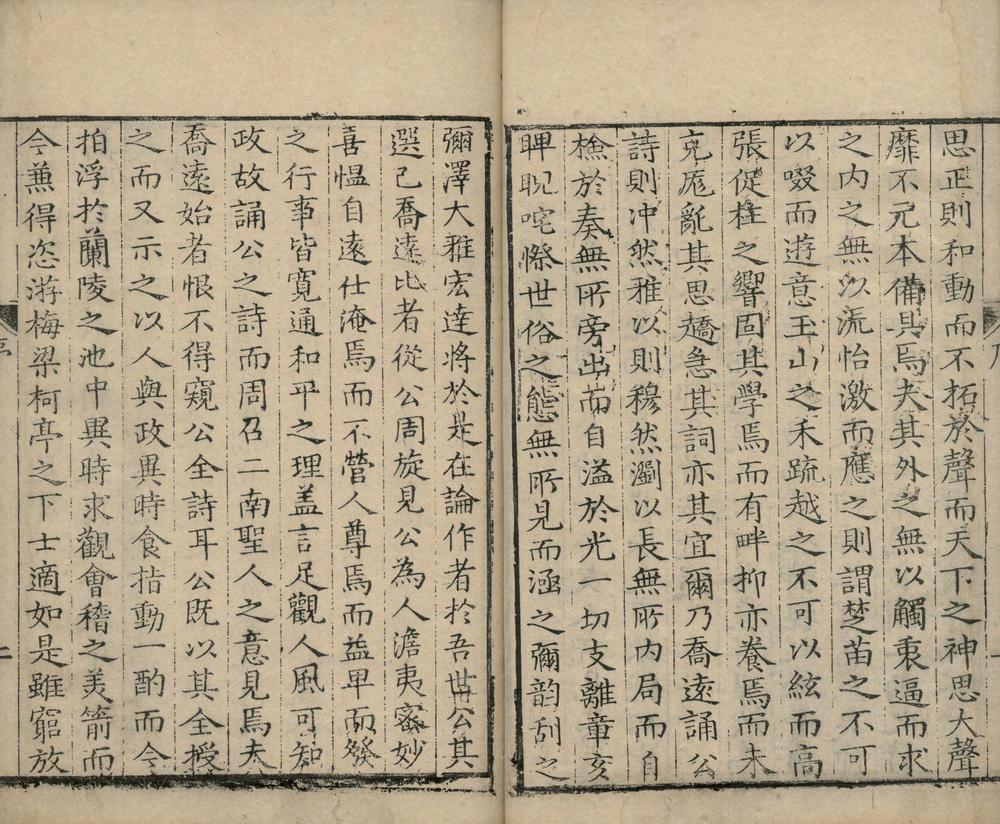 思正則和動而不拓於聲而天下之神思大聲
靡不元本備具焉夫其外之無以觸衷逼而求
之内之無以流怡激而應之則謂楚苗之不可
以啜而遊意玉山之禾疏越之不可以絃而高
張促柱之響固其學焉而有畔抑亦養焉而未
充厖亂其思趫急其詞亦其宜爾乃喬遠誦公
詩則冲然雅以則穆然瀏以長無所内局而自
樵於奏無所旁出而自溢於光一切支離章亥
睥睨咤憏世俗之態無所見而涵之彌韵刮之
彌澤大雅宏達將於是在論作者於吾世公其
選已喬遠比者從公周旋見公為人澹夷宻妙
喜愠自遠仕淹焉而不營人尊焉而益畀而發
之行事皆寬通和平之理盖言足觀人風可知
政故誦公之詩而周召二南聖人之意見焉夫
喬遠始者恨不得窺公全詩耳公既以其全授
之而又示之以人與政異時食指動一酌而今
拍浮於蘭陵之池中異時求觀會稽之美箭而
今兼得恣游梅梁柯亭之下士適如是雖窮放
序
二